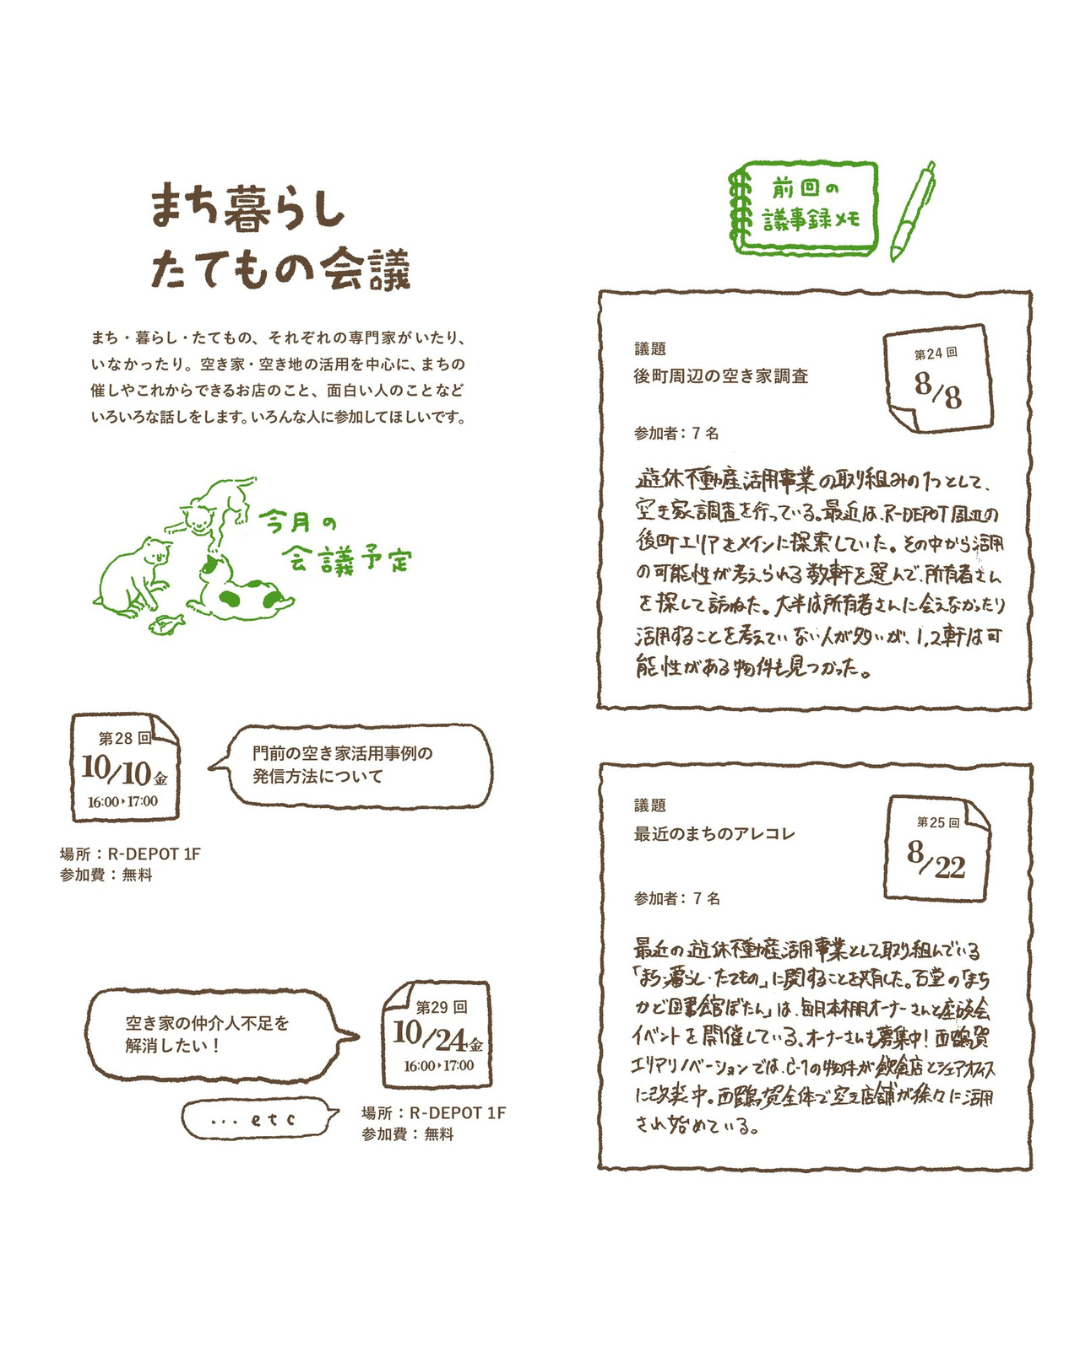 まち暮らし
たてもの会議
まち・暮らし・たてもの、それぞれの専門家がいたり、
いなかったり。空き家・空き地の活用を中心に、まちの
催しやこれからできるお店のこと、面白い人のことなど
いろいろな話しをします。いろんな人に参加してほしいです。
今月の
会議予定
第28回
10/10金
16:00▸17:00
門前の空き家活用事例の
発信方法について
場所：R-DEPOT 1F
参加費：無料
空き家の仲介人不足を
解消したい！
...etc
第29回
10/24金
16:00▸17:00
場所：R-DEPOT 1F
参加費：無料
前回の
議事録メモ
議題
後町周辺の空き家調査
第24回
8/8
参加者：7名
遊休不動産活用事業の取り組みの1つとして、
空き家調査を行っている。最近は、R-DEPOT周辺の
後町エリアをメインに探索していた。その中から活用
の可能性が考えられる数軒を選んで、所有者さん
を探して訪ねた。大半は所有者さんに会えなかったり
活用することを考えていない人が多いが、1,2軒は可
能性がある物件も見つかった。
議題
最近のまちのアレコレ
第25回
8/22
参加者：7名
最近の遊休不動産活用事業として取り組んでいる
「まち・暮らし・たてもの」に関することを共有した。石堂の「まち
かど図書館ぼたん」は、毎月本棚オーナーさんと座談会
イベントを開催している。オーナーさんも募集中！西鶴賀
エリアリノベーションでは、C-1の物件が飲食店とシェアオフィス
に改装中。西鶴賀全体で空き店舗が徐々に活用
され始めている。